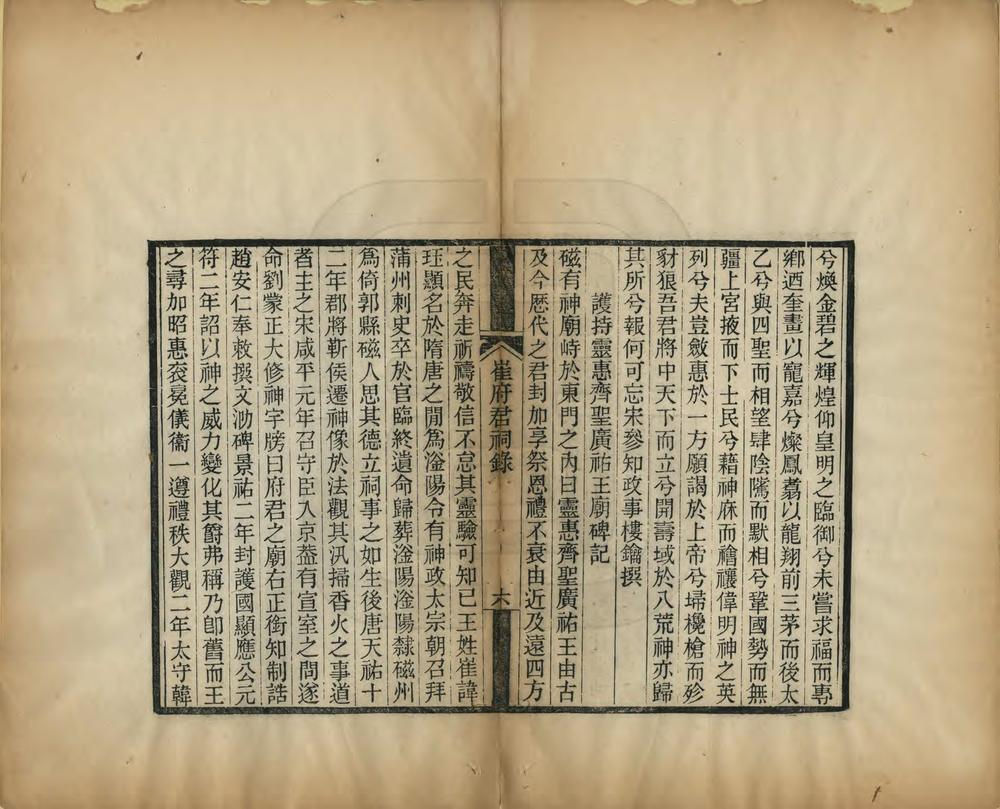 兮煥金碧之輝煌仰皇明之臨御兮未嘗求福而專
鄉迺奎畫以寵嘉兮燦鳳翥以龍翔前三茅而後太
乙兮與四聖而相望肆陰隲而默相兮鞏國勢而無
疆上宮掖而下士民兮藉神庥而禬禳偉明神之英
列兮夫豈斂惠於一方願謁於上帝兮埽欃槍而殄
豺狼吾君將中天下而立兮開壽域於八荒神亦歸
其所兮報何可忘宋參知政事樓鑰撰
護持靈惠齊聖廣祐王廟碑記
磁有神廟峙於東門之內曰靈惠齊聖廣祐王由古
及今歷代之君封加享祭恩禮不衰由近及遠四方
崔府君祠錄
六
之民奔走祈禱敬信不怠其靈驗可知已王姓崔諱
珏顯名於隋唐之閒爲滏陽令有神政太宗朝召拜
蒲州刺史卒於官臨終遺命歸葬滏陽滏陽隸磁州
爲倚郭縣磁人思其德立祠事之如生後唐天祐十
二年郡將靳侯遷神像於法觀其汛掃香火之事道
者主之宋咸平元年召守臣入京葢有宣室之問遂
命劉蒙正大修神宇牓曰府君之廟右正銜知制誥
趙安仁奉敕撰文泐碑景祐二年封護國顯應公元
符二年詔以神之威力變化其爵弗稱乃卽舊而王
之尋加昭惠袞冕儀衞一遵禮秩大觀二年太守韓